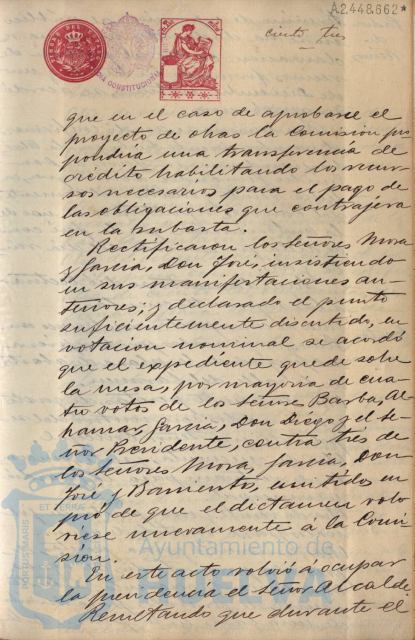 A2.448.662*
ciento tres
que en el caso de aprobarse el
proyecto de obras la Comisión pro
pondria una transferencia de
crédito habilitando los recur-
sos necesarios para el pago de
las obligaciones que contrajera
en la subasta.
Rectificaron los señores Mora
y García, Don José, insistiendo
en sus manifestaciones an-
teriores; y declarado el punto
suficientemente discutido, en
votacion nominal se acordó
que el expediente quede sobre
la mesa, por mayoria de cua-
tro votos de los señores Barba, Al
hamar, García, Don Diego y el se-
ñor Presidente, contra tres de
los señores Mora, García, Don
José y Barriento, emitidos en
pró de que el dictamen vol
viese nuevamente á la Comi
sión.
En este acto volvió á ocupar
la presidencia el señor Alcalde.
Resultando que durante el
Ayuntamiento de
HUELVA
PORTUS MARIS
ET TERRAE
CONSTITUCIONAL